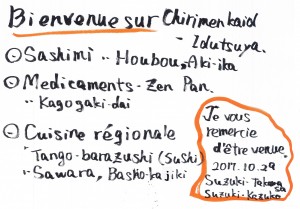 Bienvenue sur Chirimenkaido
- Idutsuya.
⊙ Sashimi .. Houbou, Aki-ika
⊙ Medicaments - Zen Pan.
.. Kagogaki-dai
⊙ Cuisine régionale
Tango-barazushi (Sushi)
.. Sawara, Basho-kajiki
Je vous
remercie
d'être venue.
2017.10.29
Suzuki-
Suzuki-Kazuko